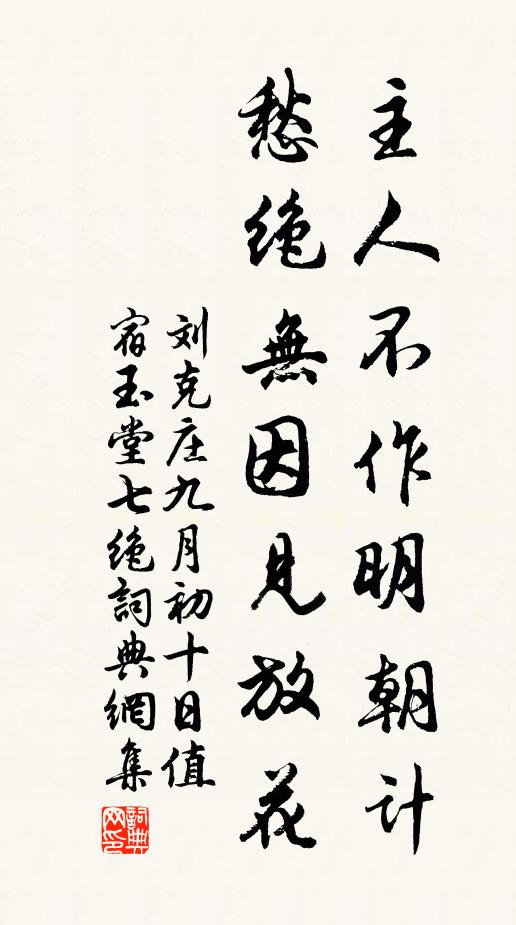 主人不作明朝计
愁绝無因見放花
刘克庄九月初十日值
宿玉堂七绝詞典網集
詞典网印